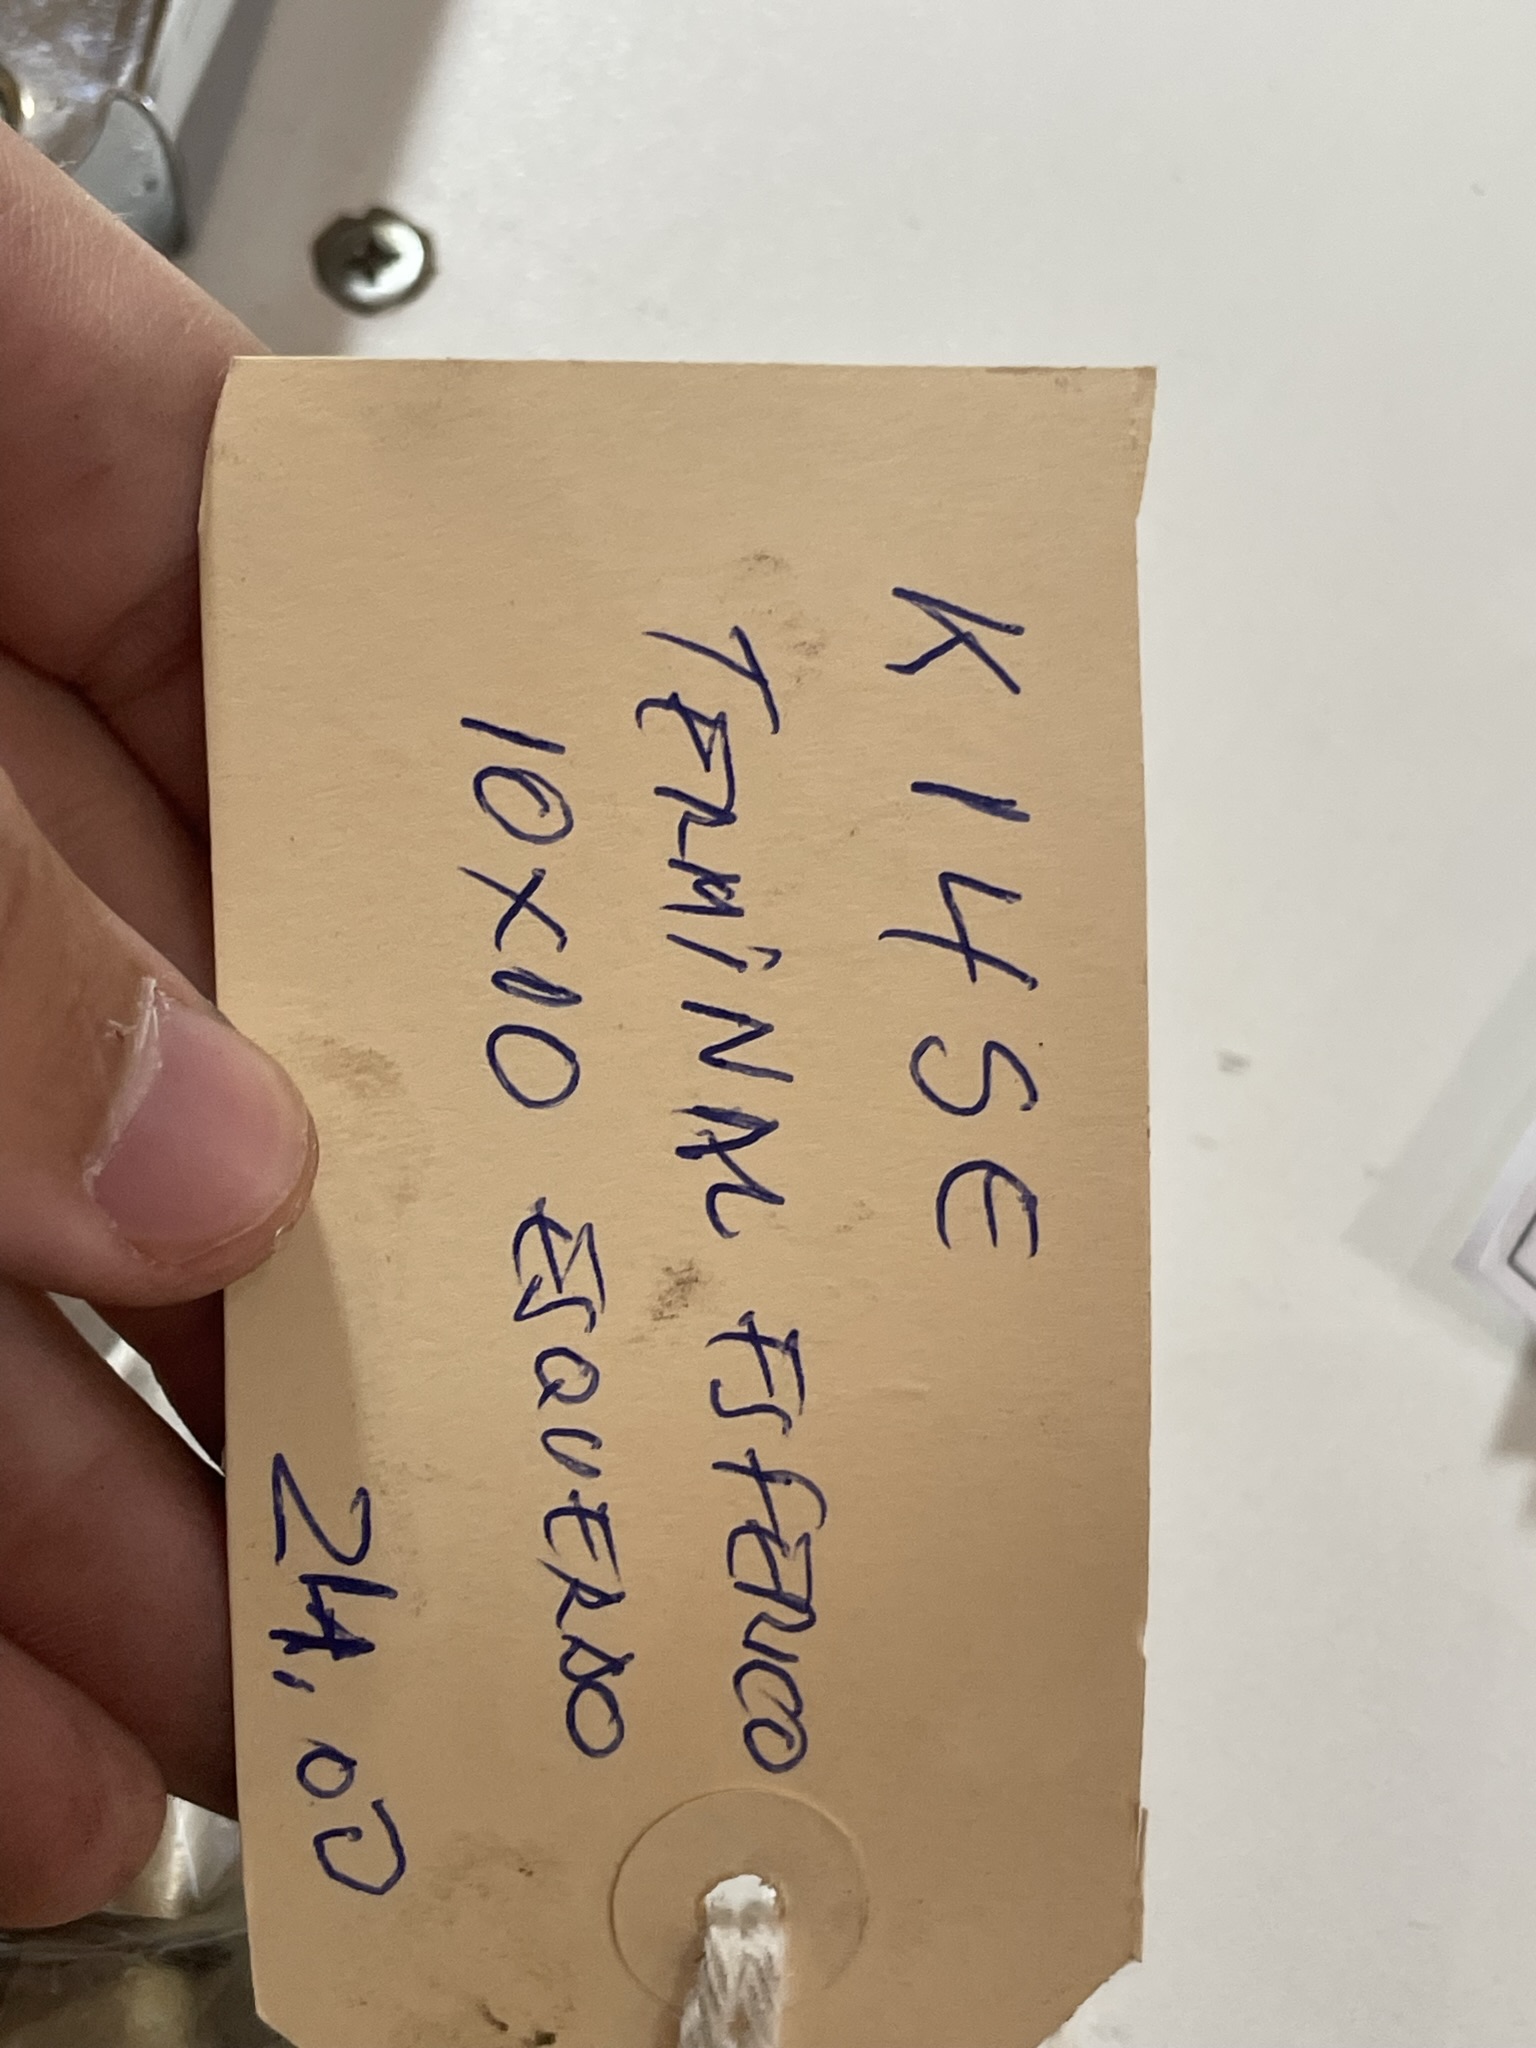 K14SE
TERMINAL ESFERICO
10X10 ESQUERDO
24,00